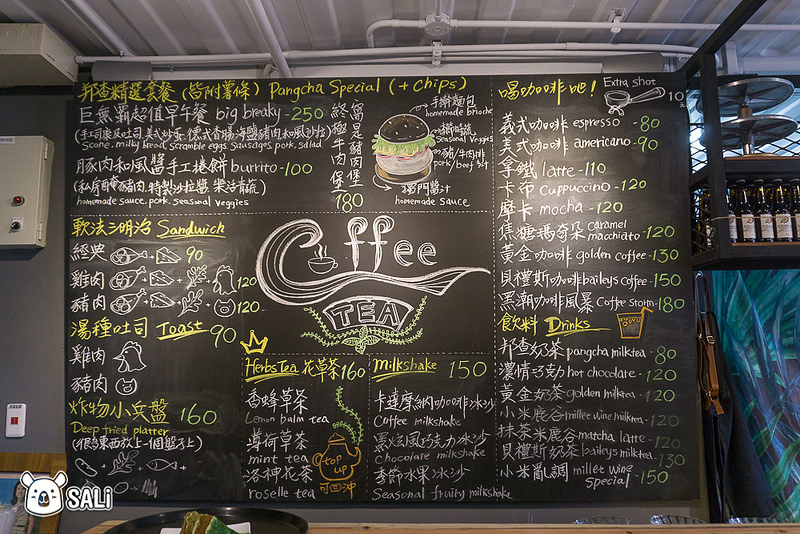 邦查精選套餐(皆附薯條) Pangcha Special (+ chips)
巨無霸超值早午餐 big breaky - 250
Scone, milky bread, scramble eggs, sausages, pork, salad
豚肉和風醬手工捲餅 burrito - 100
homemade sauce, pork, seasonal veggies
終極牛肉堡
窩是豬肉堡
180
手撕麵包
homemade brioche
seasonal veggies
豬/牛肉排
pork/beef 
獨門醬汁
homemade sauce
軟法三明治 Sandwich
經典 90
雞肉 120
豬肉 120
湯種吐司 Toast 90
雞肉
豬肉
炸物小兵盤 160
Deep fried platter
Coffee
TEA
Herbs Tea 花草茶 160
香蜂草茶
Lemon balm tea
薄荷草茶
mint tea
洛神花茶
roselle tea
top up
可回沖
Milkshake 150
卡達摩納咖啡冰沙
Coffee milkshake
義法風巧克力冰沙
Chocolate milkshake
季節水果冰沙
Seasonal fruity milkshake
喝咖啡吧!
Extra shot
10元
義式咖啡 espresso - 80
美式咖啡 americano - 90
拿鐵 latte - 110
卡布 cappuccino - 120
摩卡 mocha - 120
焦糖瑪奇朵 caramel macchiato - 120
黃金咖啡 golden coffee - 130
貝禮斯咖啡 baileys coffee - 150
黑潮咖啡風暴 Coffee storm - 180
飲料 Drinks
邦查奶茶 pangcha milktea - 80
濃情巧克力 hot chocolate - 120
黃金奶茶 golden milktea - 120
小米鹿谷 millet wine milktea - 120
抹茶米鹿谷 matcha latte - 120
貝禮斯奶茶 baileys milktea - 130
小米亂調 millet wine special - 150
SALI